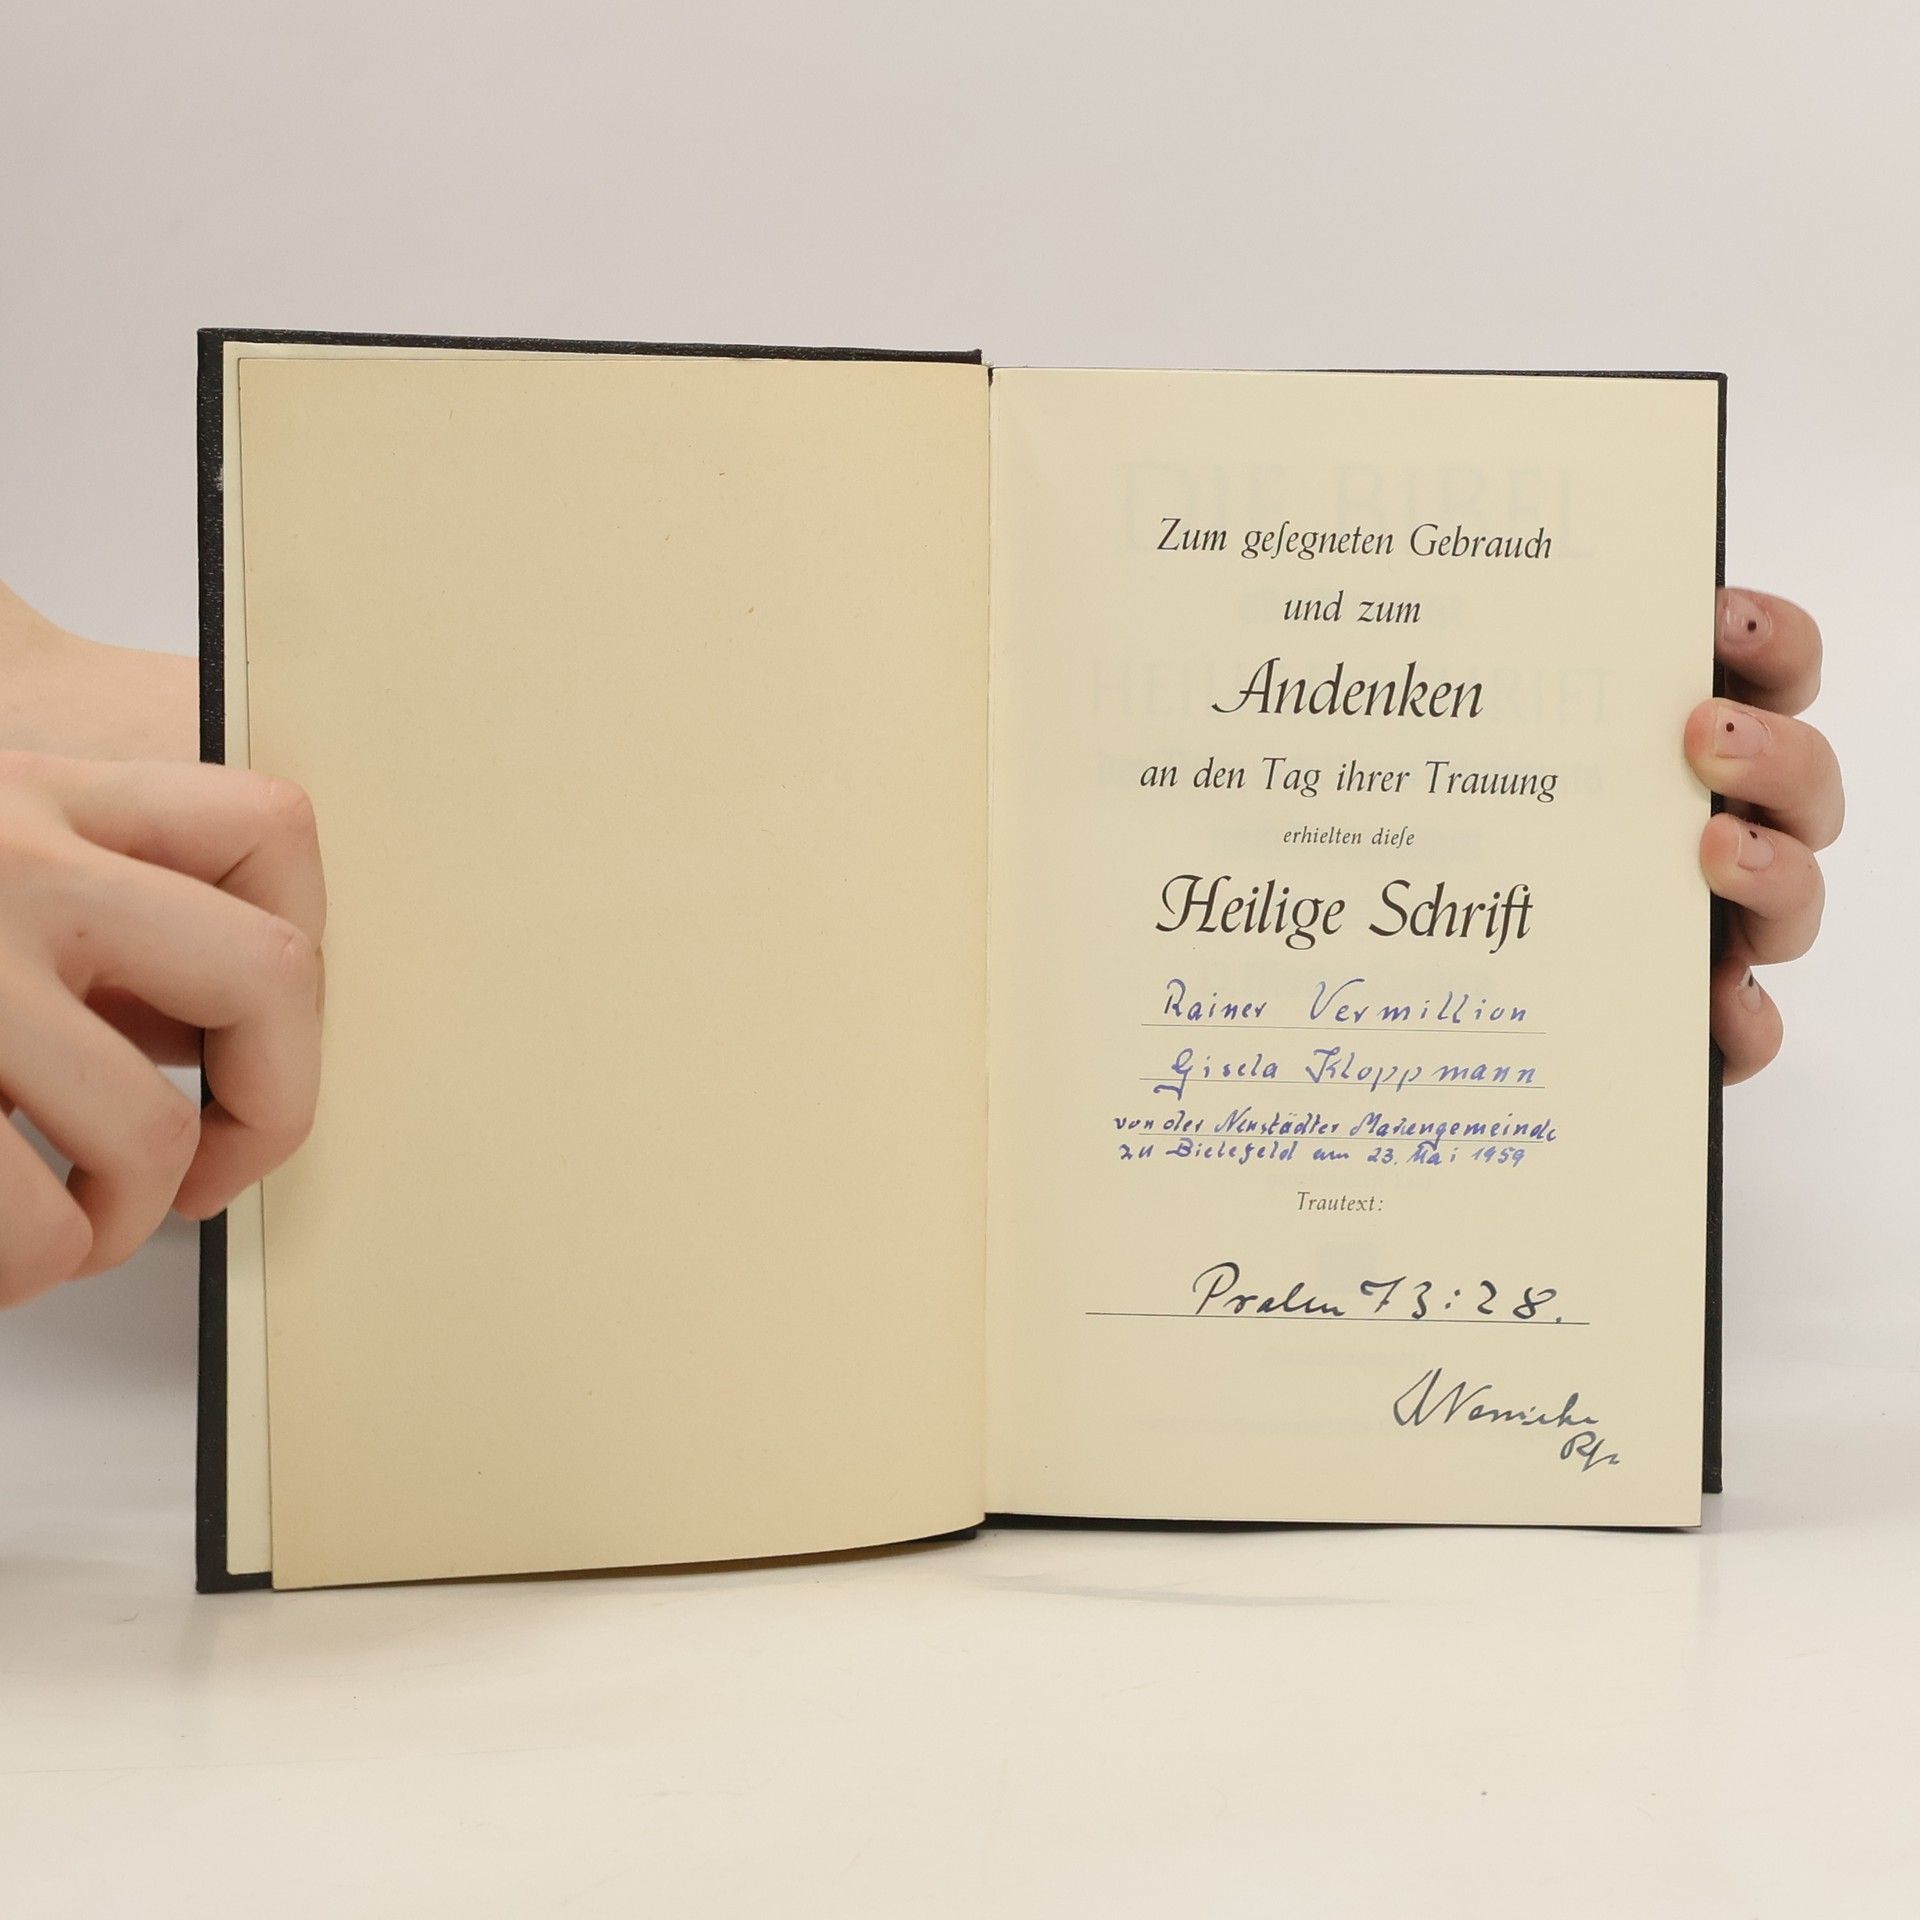 Zum geſegneten Gebrauch
und zum
Andenken
an den Tag ihrer Trauung
erhielten dieſe
Heilige Schrift
Rainer Vermillion
Gisela Kloppmann
von der Neustädter Mariengemeinde
zu Bielefeld am 23. Mai 1959
Trautext:
Psalm 73:28.